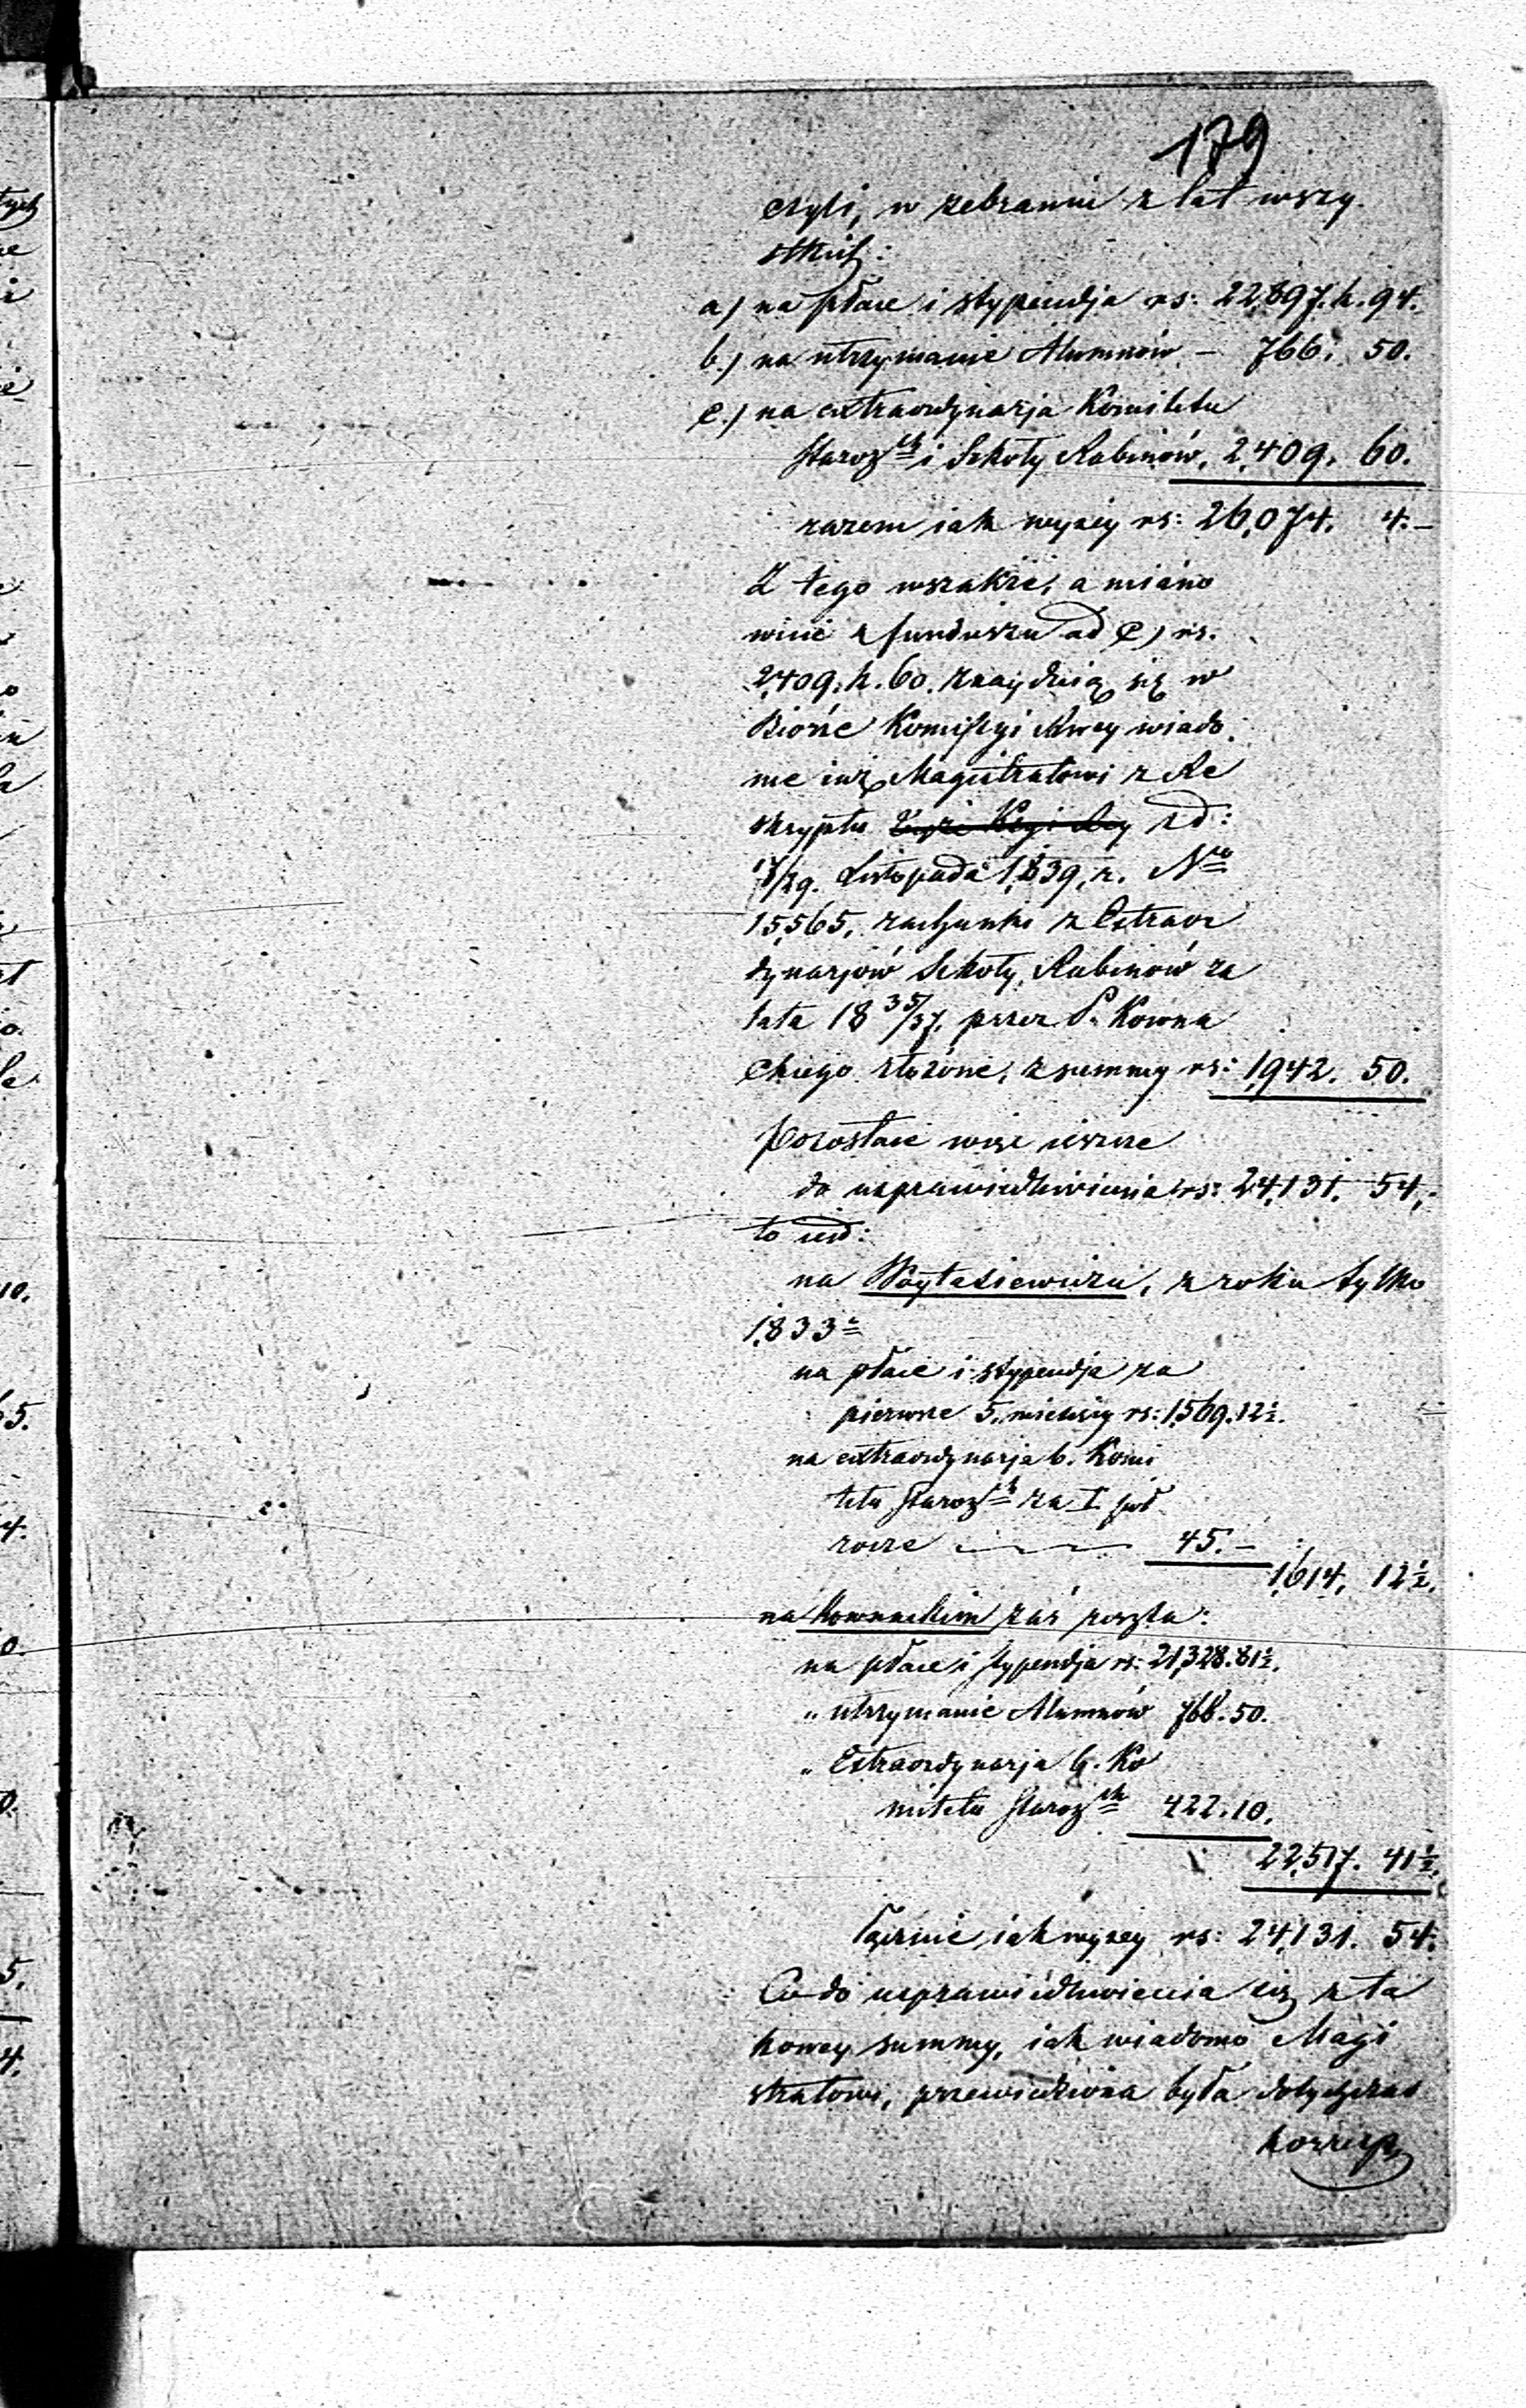 179
czyli, w zebraniu z lat wszy-
stkich:
a) na płace i stypendja rs: 22,897. k. 94.
b.) na utrzymanie Alumnów - 766. 50.
c.) na extraordynarja Komitetu
Staroz<sup>ch</sup> i Szkoły Rabinów. 2,409. 60.
razem iak wyżey rs: 26,074. 4.-
Z tego wszakże, a miano
wicie z funduszu ad c) rs.
2,409. k. 60. znaydują się w
Biórze Kommissyi Rwey wiado
me iuż Magistratowi z Re
skryptu z d:
17/29. Listopada 1,839. r. N<sup>ro</sup>
15,565, rachunki z Extraor
dynarjów Szkoły Rabinów za
lata 18 35/37. przez P. Kowna
ckiego złożone, z summy rs: 1,942. 50.
Pozostaie więc ieszcze
do usprawiedliwienia rs: 24,131. 54.
to iest:
na Woytasiewiczu, z roku tylko
1,833<sup>o</sup>
na płace i stypendja za
pierwsze 5. miesięcy rs: 1,569. 12½.
na extraordynarja b. Komi
tetu Staroz<sup>ch</sup> za I. pół
rocze 45.-
1,614. 12½.
na Kownackim zaś reszta:
na płace i stypendja rs: 21,328. 81½.
" utrzymanie Alumnów 766. 50.
" Extraordynarja b. Ko
mitetu Staroz<sup>ch</sup> 422. 10.
22,517. 41½.
Łącznie iak wyżey rs: 24,131. 54.
Co do usprawiedliwienia się z ta
kowey summy, iak wiadomo Magi
stratowi, przewiedziona była dotychczas
korresp